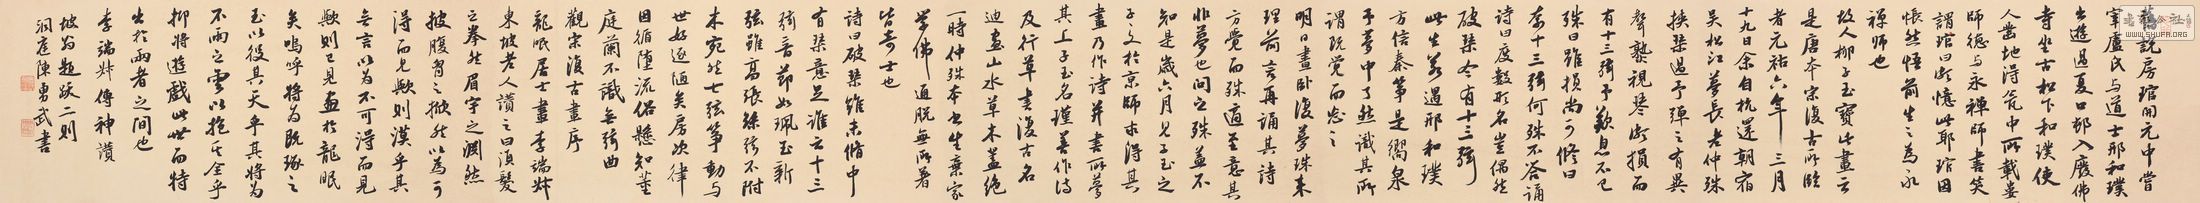 舊說房琯開元中嘗
宰盧氏與道士邢和璞
出遊過夏口邨入廢佛
寺坐古松下和璞使
人鑿地得甕中所載婁
師德與永禪師書笑
謂琯曰頗憶此耶琯因
悵然悟前生之為永
禪師也
故人柳子玉寶此畫云
是唐本宋復古所臨
者元祐六年三月
十九日余自杭還朝宿
吳松江夢長老仲殊
挾琴過予彈之有異
聲熟視琴頗損而
有十三弦予歎息不已
殊曰雖損尚可修曰
奈十三弦何殊不答誦
詩曰度數形名豈偶然
破琴今有十三弦
此生若遇邢和璞
方信秦箏是響泉
予夢中了然識其所
謂既覺而忘之
明日晝臥復夢殊來
理前言再誦其詩
方覺而殊適至意其
非夢也問之殊蓋不
知是歲六月見子玉之
子子文於京師求得其
畫乃作詩并書所夢
其上子玉名瑾善作詩
及行草書復古名
迪畫山水草木蓋絕
一時仲殊本書生棄家
學佛通脫無所著
皆奇士也
詩曰破琴雖未修中
有琴意足誰云十三
弦音節如珮玉新
弦雖高張絲弦不附
木宛然七弦箏動與
世好逐陋矣房次律
因循墮流俗懸知董
庭蘭不識無弦曲
觀宋復古畫序
龍眠居士畫李端叔
東坡老人讚之曰須髮
之拳然眉宇之淵然
披腹胸之掀然以為可
得而見歟則漠乎其
無言以為不可得而見
歟則已見畫於龍眠
矣嗚呼將為既琢之
玉以役其天乎其將為
不雨之雲以抱其全乎
抑將遊戲此世而特
出於兩者之間也
李端叔傳神讚
坡翁題跋二則
洞庭陳勇武書